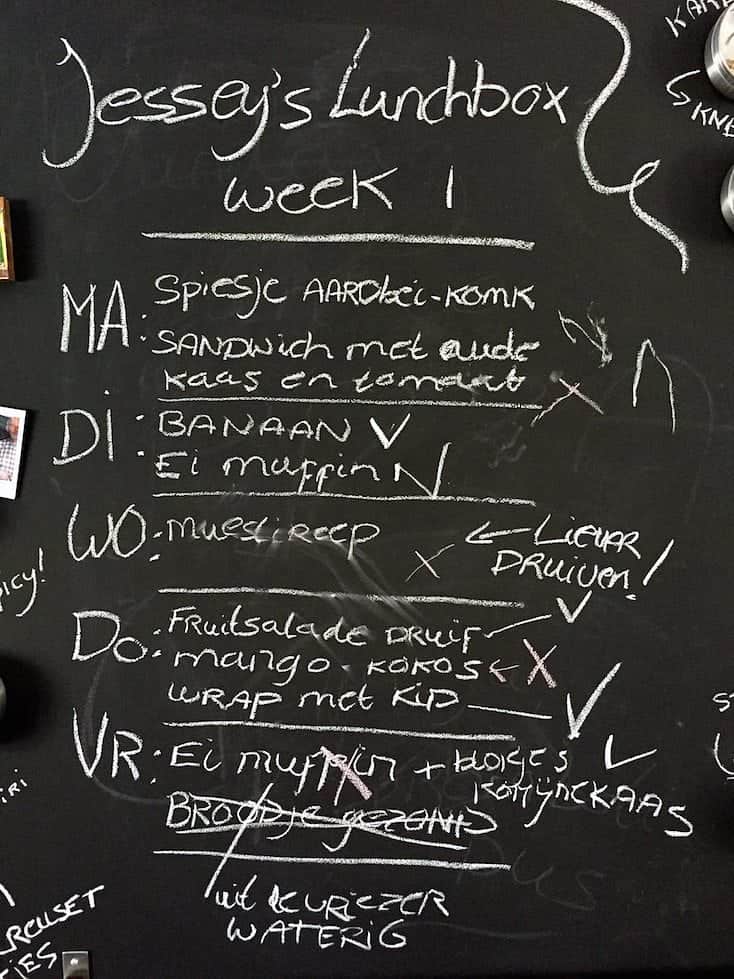 Jessey's Lunchbox
week 1
MA: Spiesje AARDbei-KOMK
SANDWich met oude
kaas en tomaat X
DI: BANAAN V
Ei muffin N
WO: muesli reep
X ← Liever
DRUIVEN!
DO: FRuitsalade DRUIF V
mango - KOKOS ← X
WRAP met KIP V
VR: Ei muffin + blokjes V
KOMIJNEKAAS
BROODje gezOND
uit
WATERIG
ICY!
REUSET
IES
IRI
KNE